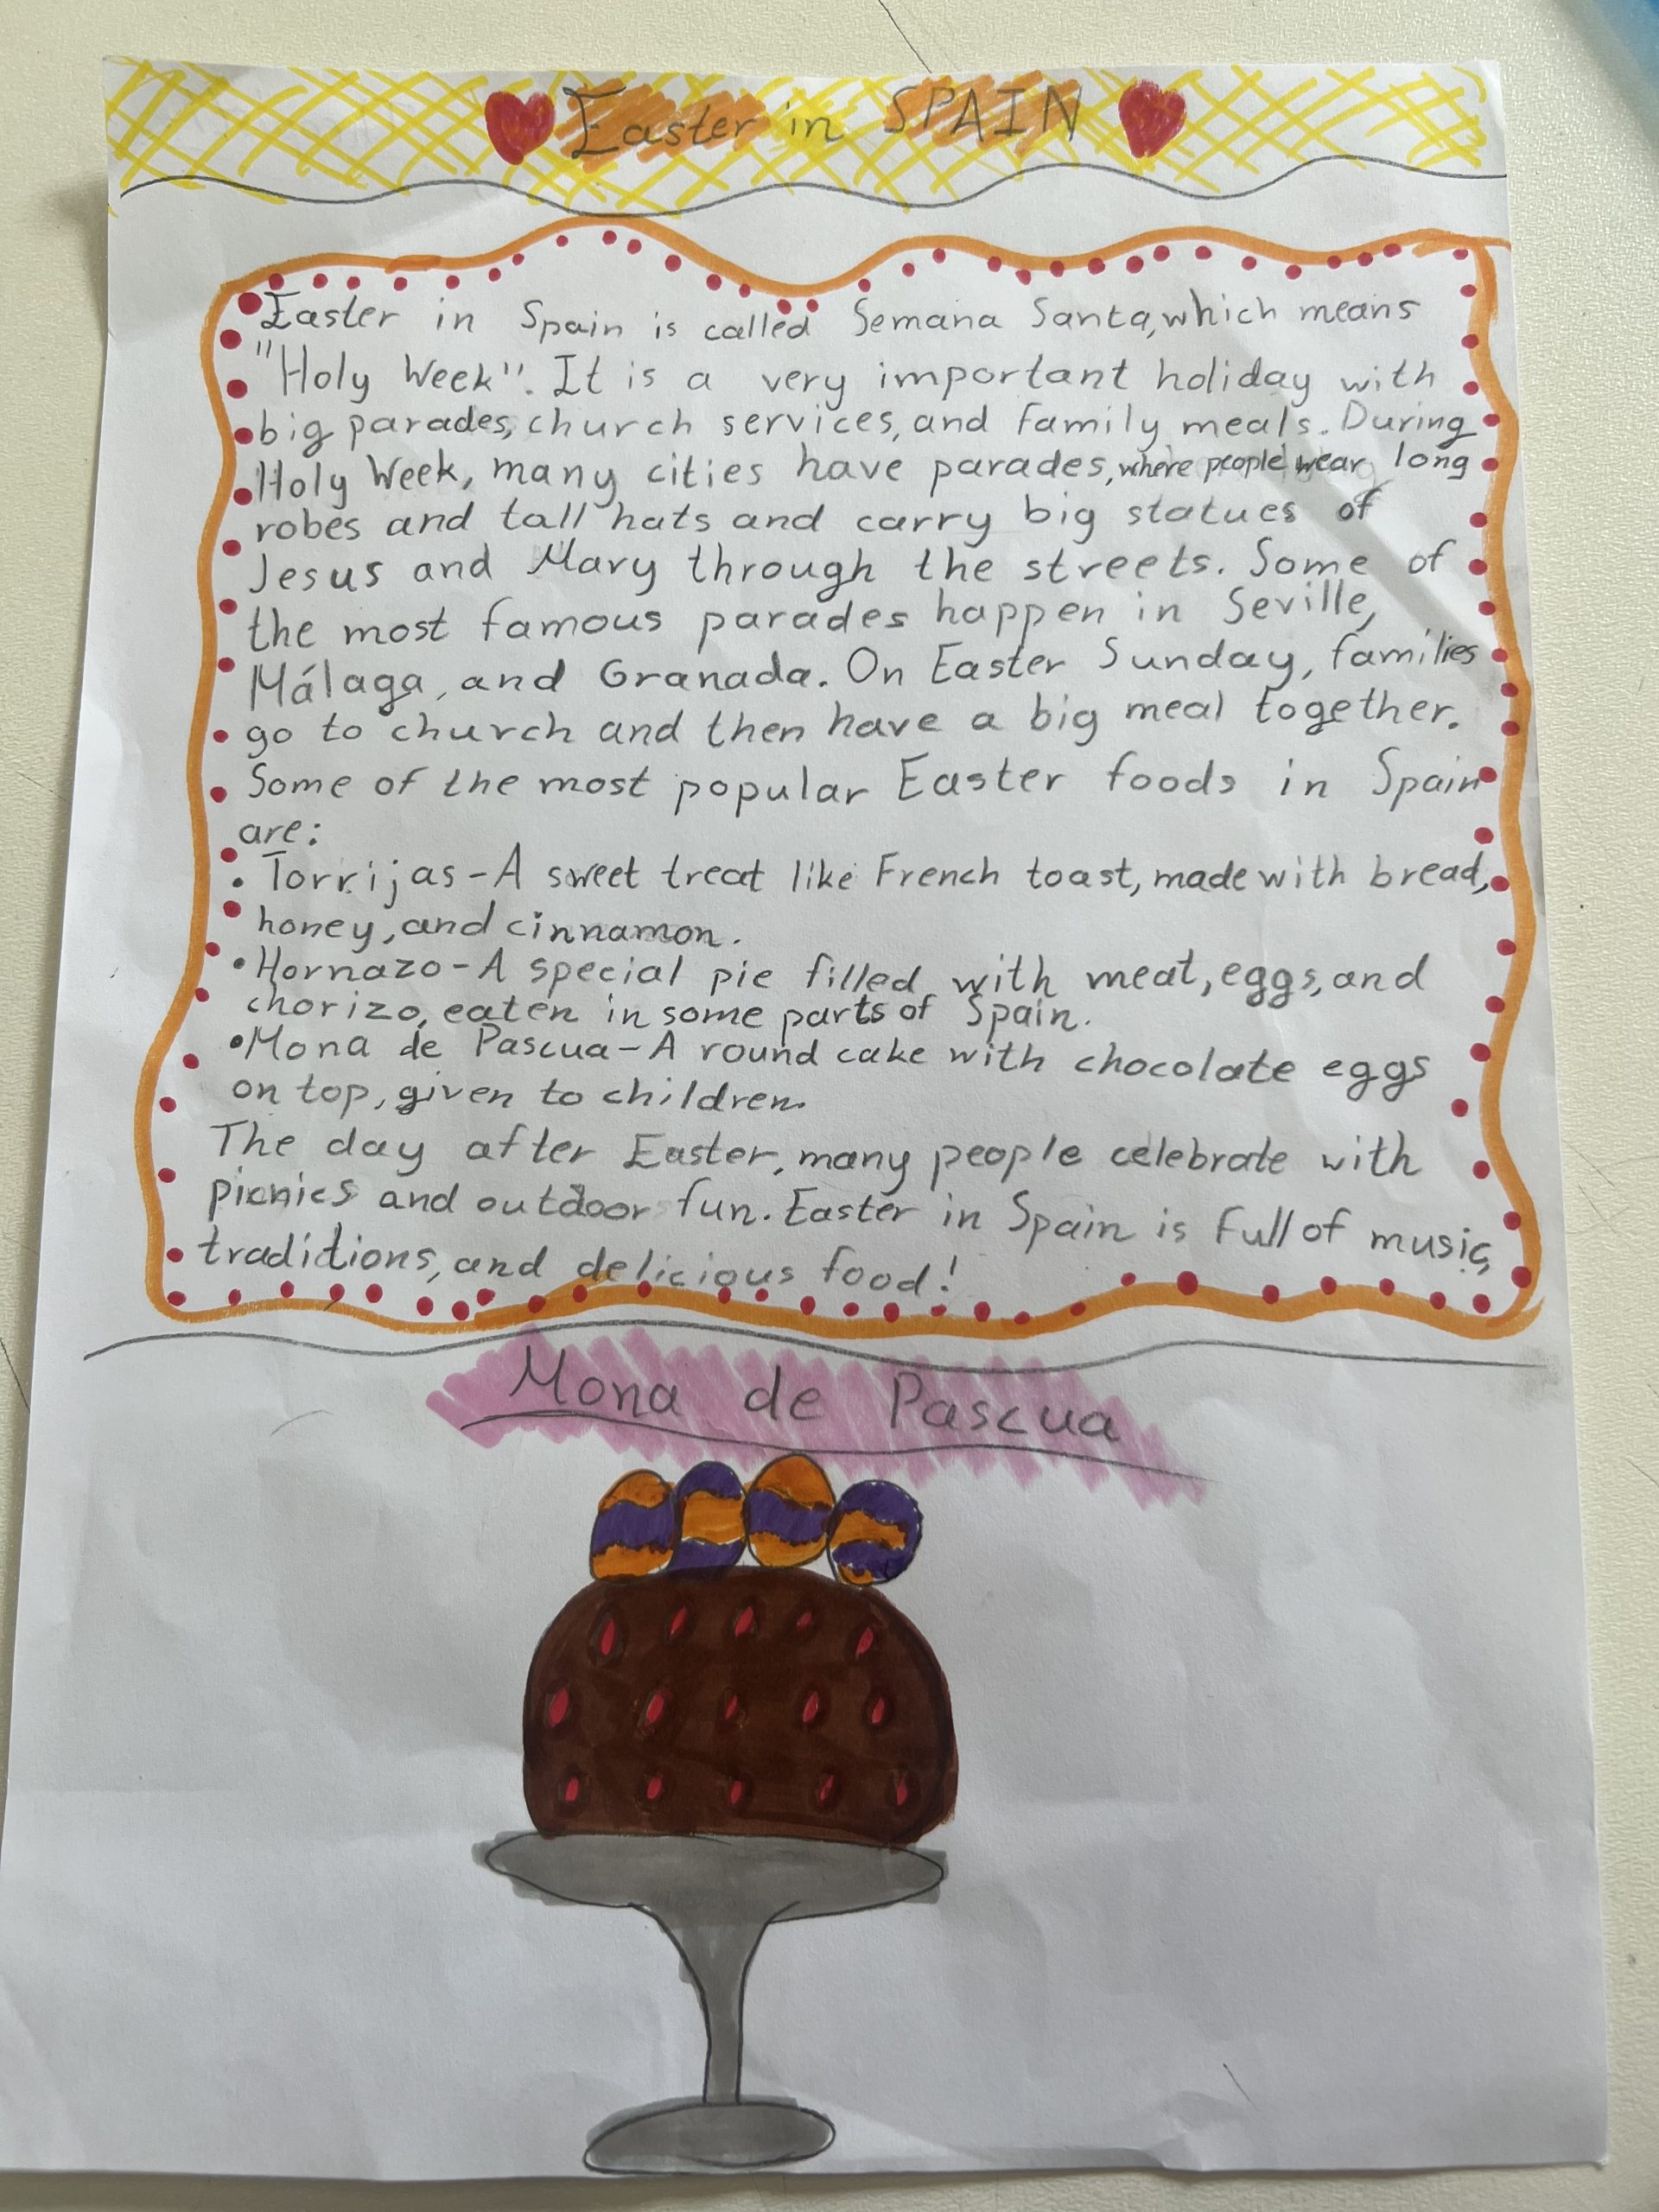 Easter in SPAIN
Easter in Spain is called Semana Santa, which means
"Holy Week". It is a very important holiday with
big parades, church services, and family meals. During
Holy Week, many cities have parades, where people wear long
robes and tall hats and carry big statues of
Jesus and Mary through the streets. Some of
the most famous parades happen in Seville,
Málaga, and Granada. On Easter Sunday, families
go to church and then have a big meal together.
Some of the most popular Easter foods in Spain
are:
• Torrijas - A sweet treat like French toast, made with bread,
honey, and cinnamon.
• Hornazo - A special pie filled with meat, eggs, and
chorizo, eaten in some parts of Spain.
• Mona de Pascua - A round cake with chocolate eggs
on top, given to children.
The day after Easter, many people celebrate with
picnics and outdoor fun. Easter in Spain is full of music,
traditions, and delicious food!
Mona de Pascua